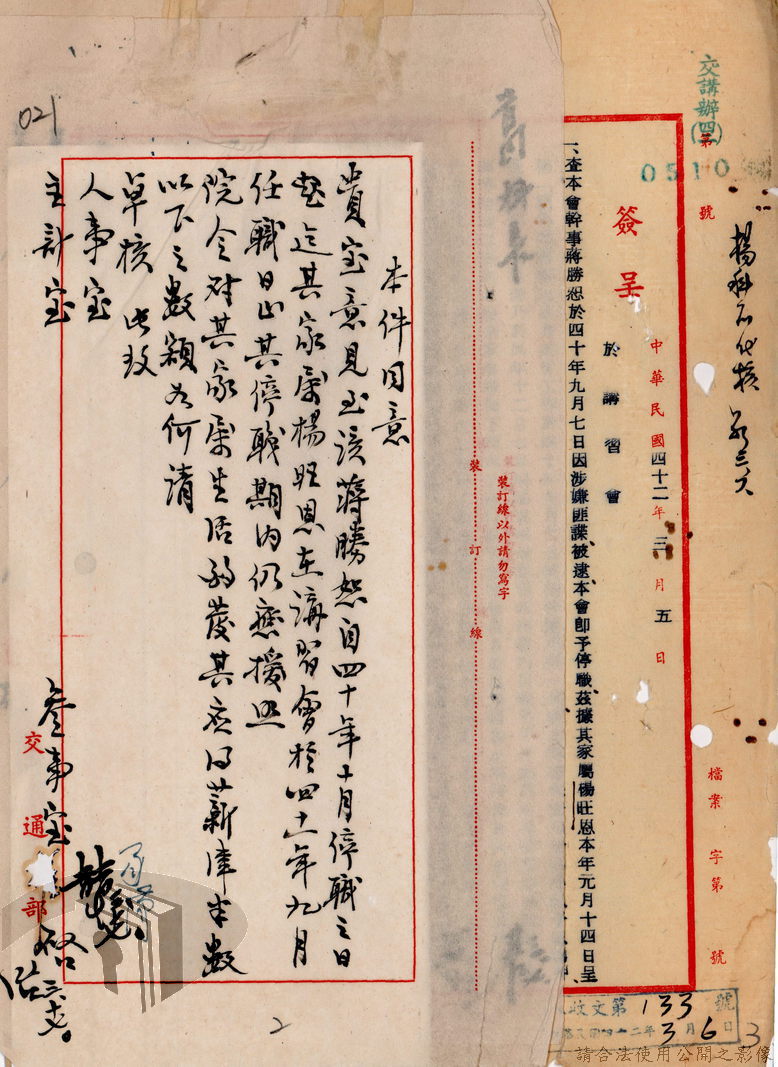 交講辦(四)第
0510
號
楊科石代核
簽呈
於講習會
中華民國四十二年三月五日
檔案 字第 號
一、查本會幹事蔣勝恕於四十年九月七日因涉嫌匪諜被逮本會即予停職茲據其家屬楊旺恩本年元月十四日呈
裝訂線以外請勿寫字
裝 訂 線
收文第133號
四十二年3月6日
3
021
本件同意
貴室意見至該蔣勝恕自四十年十月停職之日
起迄其家屬楊旺恩在講習會於四十一年九月
任職日止其停職期內仍應援照
院令對其家屬生活酌發其應得薪津半數
以下之數額為何請
卓核 此致
人事室
主計室
參事室
啟
交通部
2
請合法使用公開之影像